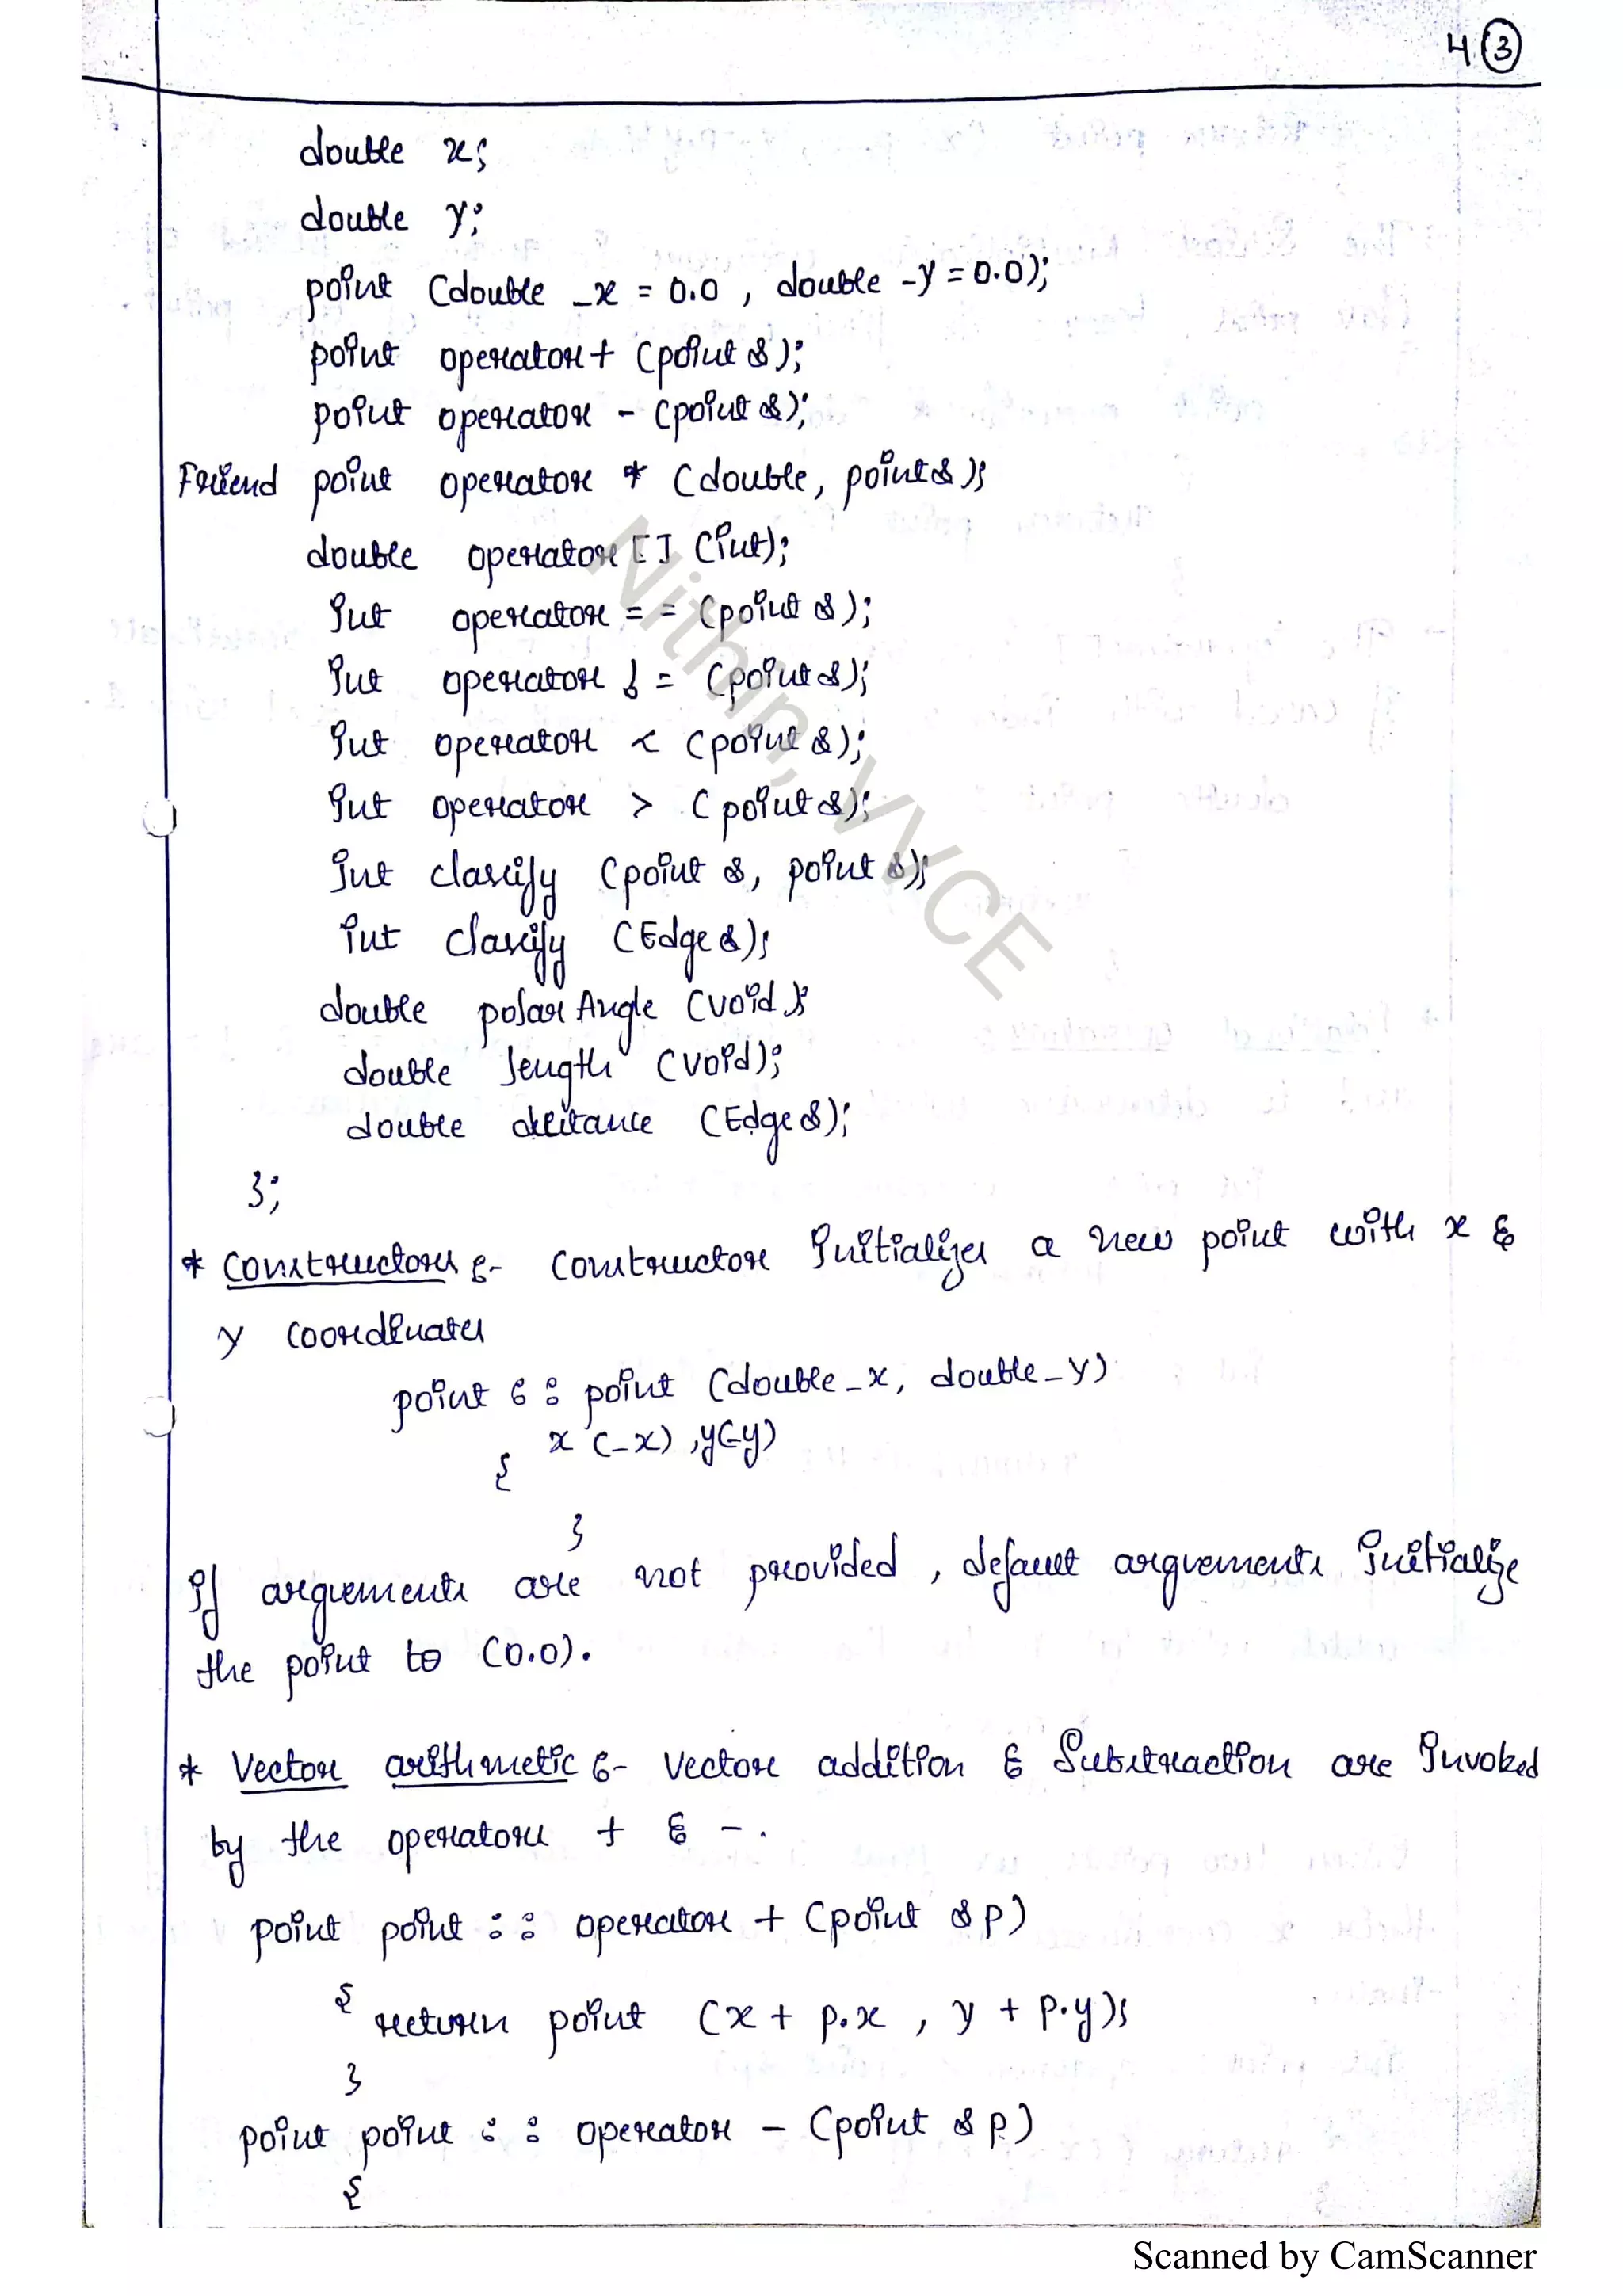 4 3
double x;
double y;
point (double _x = 0.0 , double _y = 0.0);
point operator + (point &);
point operator - (point &);
Friend point operator * (double, point &);
double operator [ ] (int);
int operator = = (point &);
int operator ! = (point &);
int operator < (point &);
int operator > (point &);
int classify (point &, point &);
int classify (Edge &);
double polar Angle (void);
double length (void);
double distance (Edge &);
};
* Constructors :- Constructor Initializes a new point with x &
y coordinates
point : : point (double _x, double _y)
x (_x) , y(_y)
{
}
If arguements are not provided , default arguements initialize
the point to (0.0).
* Vector arithmetic :- Vector addition & Substraction are Invoked
by the operators + & - .
point point : : operator + (point & p)
{
return point (x + p.x , y + p.y);
}
point point : : operator - (point & p)
{
Nithin, VVCE
Scanned by CamScanner